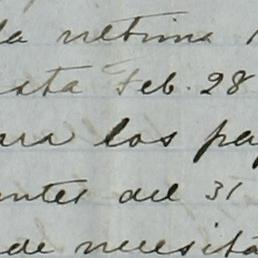 da netima
sta Feb. 28
ara los pa
antes del 31
de necesita